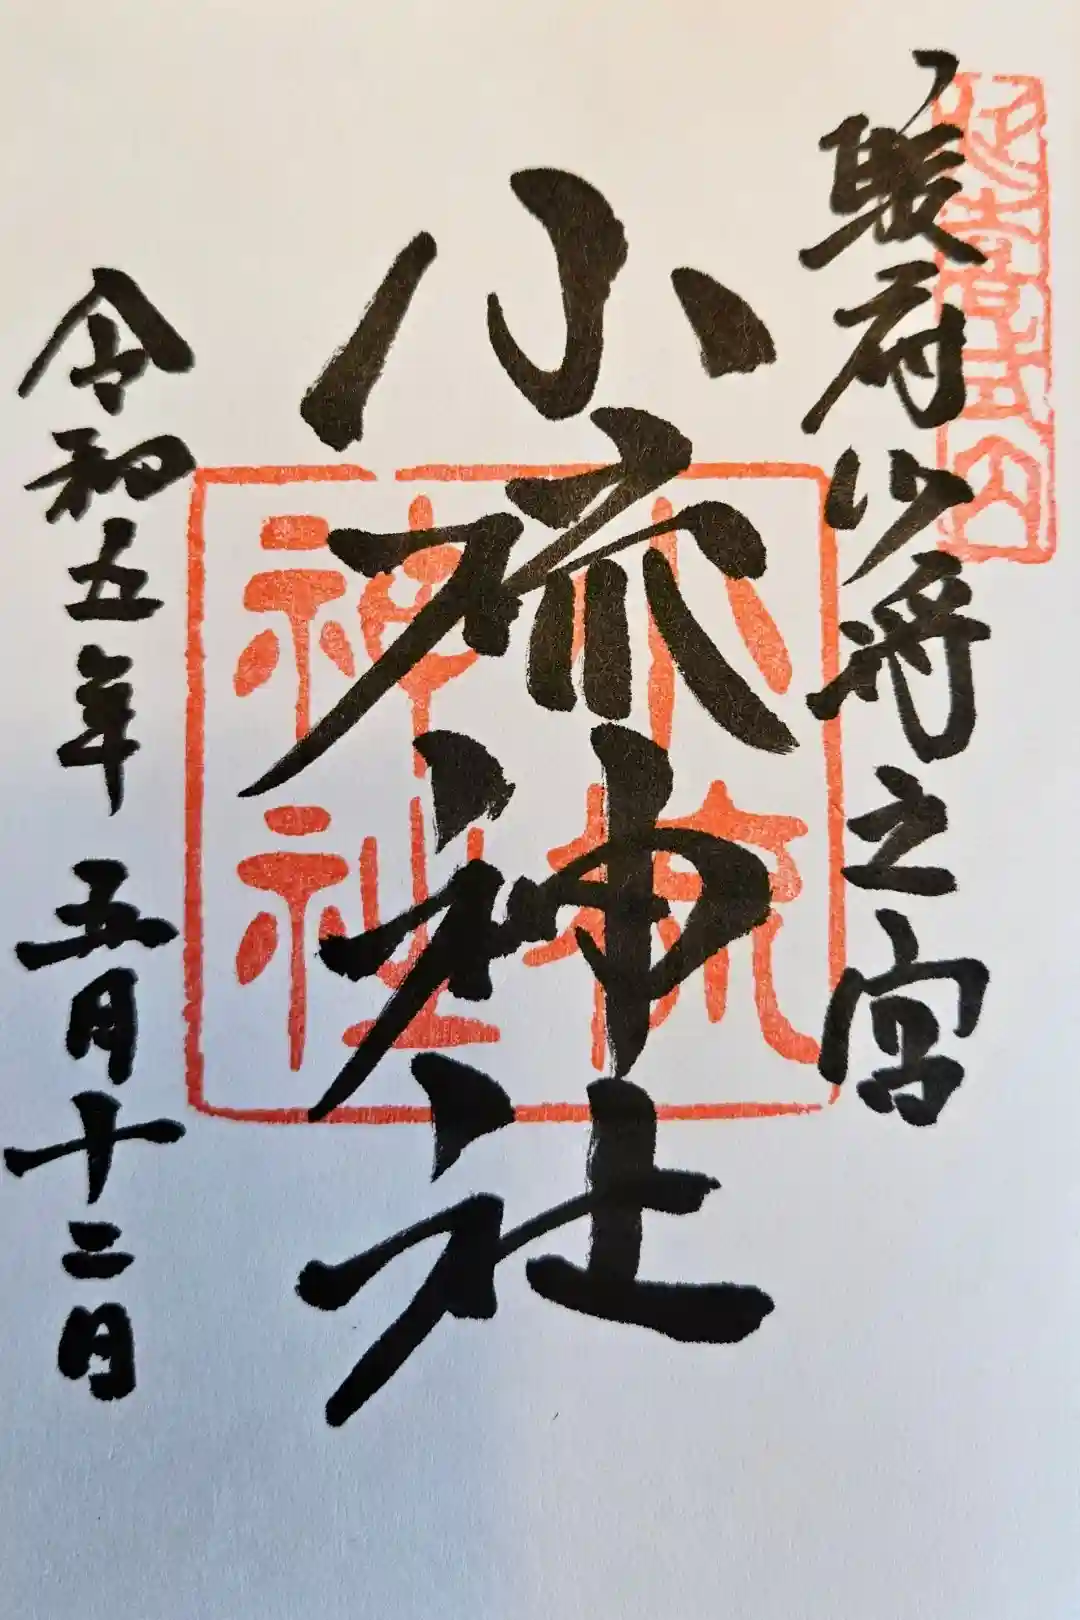 延喜式内
駿府少将之宮
小梳神社
小梳神社
令和五年 五月十二日